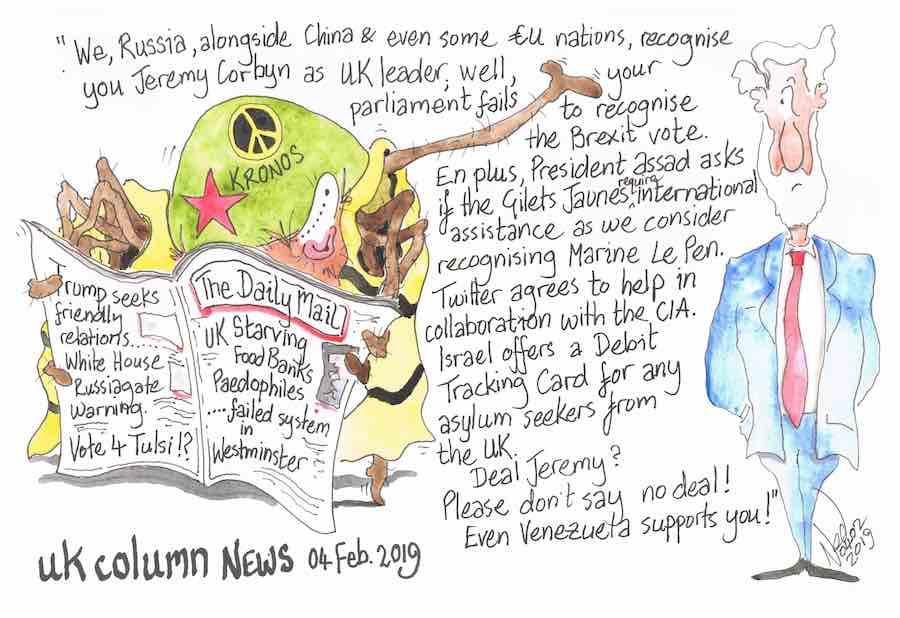 "We, Russia, alongside China & even some €U nations, recognise
you Jeremy Corbyn as UK leader, well, your
parliament fails to recognise
the Brexit vote.
En plus, President assad asks
if the Gilets Jaunes require international
assistance as we consider
recognising Marine Le Pen.
Twitter agrees to help in
collaboration with the CIA.
Israel offers a Debit
Tracking Card for any
asylum seekers from
the UK.
Deal Jeremy?
Please don't say no deal!
Even Venezuela supports you!"
KRONOS
Trump seeks
friendly
relations...
White House
Russiagate
Warning.
Vote 4 Tulsi!?
The Daily Mail
UK Starving
Food Banks
Paedophiles
....failed system
in
Westminster
uk column NEWS 04 Feb. 2019
2019